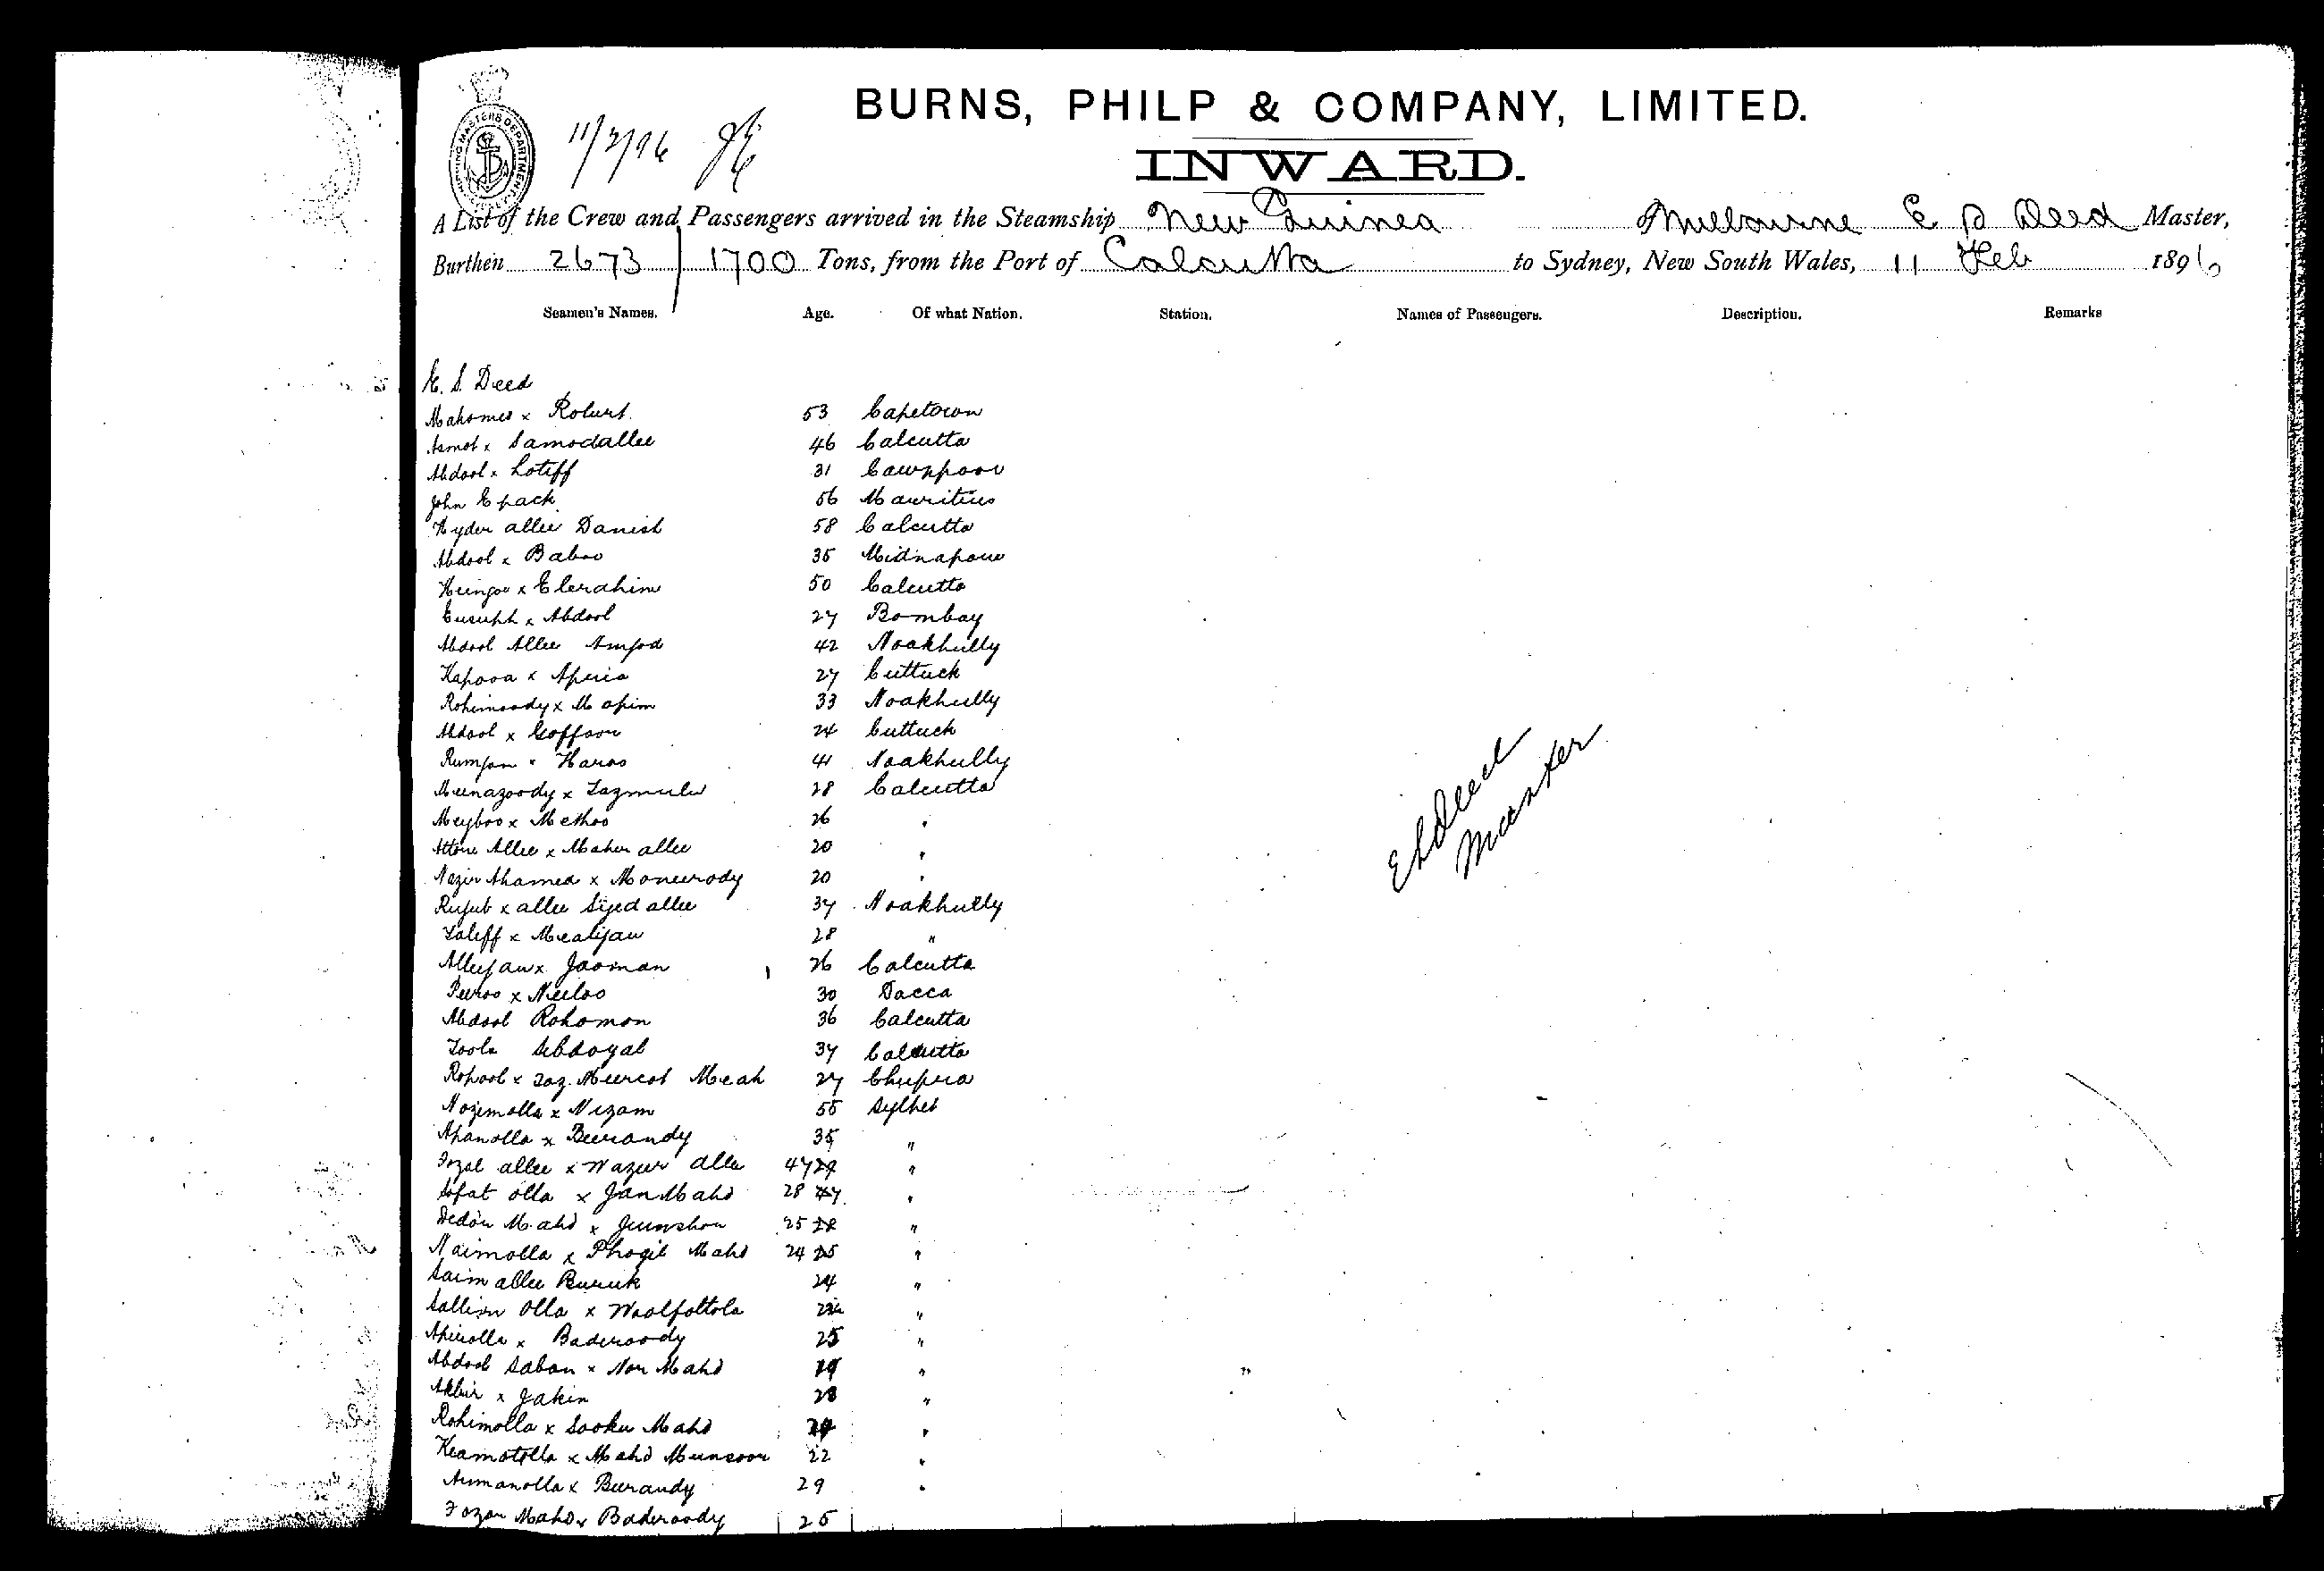 BURNS, PHILP & COMPANY, LIMITED.
INWARD.
11/2/96
A List of the Crew and Passengers arrived in the Steamship New Guinea of Melbourne E S Deed Master,
Burthen 2673 / 1700 Tons, from the Port of Calcutta to Sydney, New South Wales, 11 Feb 1896
Seamen's Names. Age. Of what Nation. Station. Names of Passengers. Description. Remarks
E. S. Deed
Mahomed x Robert 53 Capetown
Asmot x Samodallee 46 Calcutta
Abdool x Lotiff 31 Cawnpoor
John Epack 56 Mauritius
Hyder allee Danish 58 Calcutta
Abdool x Baboo 35 Midnapour
x Eberahim 50 Calcutta
Eusuph x Abdool 27 Bombay
Abdool Allee 42 Noakhully
Kapooa x 27 Cuttuck
Rohimoody x 33 Noakhully
Abdool x Goffoor 24 Cuttuck
Rumjan x Haroo 41 Noakhully
Meenazoody x 28 Calcutta
x Methoo 26 "
Allee x Maher allee 20 "
Nazir Ahamed x 20 "
Rujub x allee Syed allee 37 Noakhully
x Mealijan 28 "
Alleejan x Jaoman 26 Calcutta
Peeroo x Neeloo 30 Dacca
Abdool Rohomon 36 Calcutta
Toola Sebdoyal 37 Calcutta
x Meah 27 Chupra
Nozimolla x Nizam 55 Sylhet
Apanolla x Burandy 35 "
Fozal allee x Wazeer alle 47 "
Sofat olla x Jan Mahd 28 "
Dedou Mahd x 25 "
Naimolla x Phogil Mahd 24 "
Saim allee Buruk 24 "
Sallim Olla x Woolfottola "
x Baderoody 25 "
Abdool Saban x Nor Mahd "
Akbir x Jakin 28 "
Rohimolla x Sooku Mahd "
Keamotolla x Mahd Munsoor 22 "
Aumanolla x Burandy 29 "
Fozor Mahd x Baderoody 25
ESDeed
Master